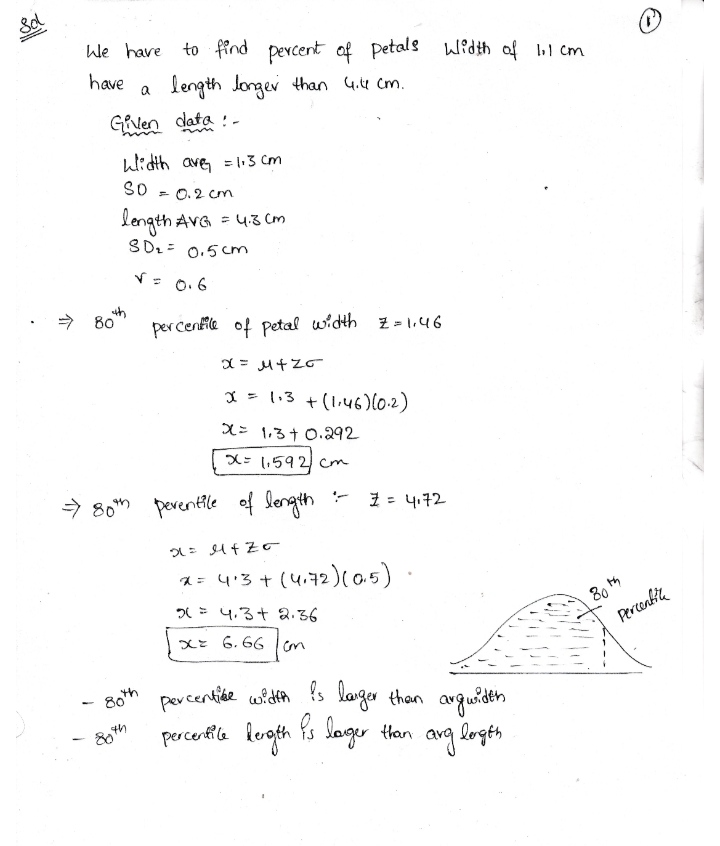 Sol
1
We have to find percent of petals Width of 1.1 cm
have a length longer than 4.4 cm.
Given data :-
Width avg = 1.3 cm
SD = 0.2 cm
length AVG = 4.3 cm
SD₂ = 0.5 cm
r = 0.6
⇒ 80th percentile of petal width z = 1.46
x = μ + zσ
x = 1.3 + (1.46)(0.2)
x = 1.3 + 0.292
x = 1.592 cm
⇒ 80th perentile of length :- z = 4.72
x = μ + zσ
x = 4.3 + (4.72)(0.5)
x = 4.3 + 2.36
x = 6.66 cm
80th
percentile
- 80th percentile width is larger than avg width
- 80th percentile length is lager than avg length